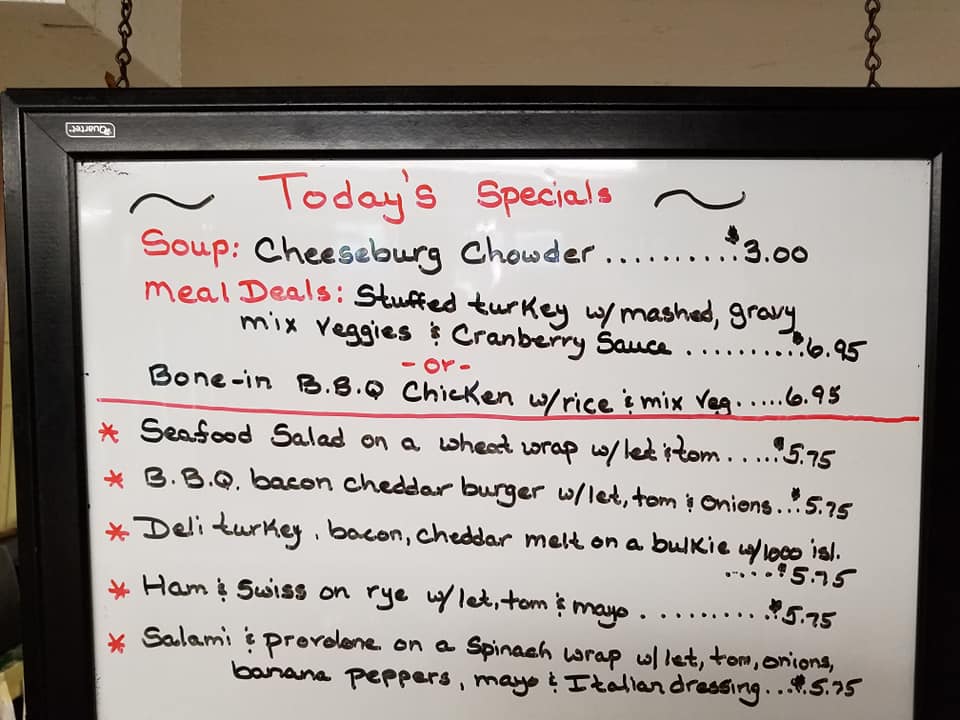 Quartet
~ Today's Specials ~
Soup: Cheeseburg Chowder ..........$3.00
Meal Deals: Stuffed turkey w/mashed, gravy
mix veggies & Cranberry Sauce ..........$6.95
- or -
Bone-in B.B.Q Chicken w/rice & mix veg......6.95
* Seafood Salad on a wheat wrap w/let & tom.....$5.75
* B.B.Q. bacon cheddar burger w/let, tom & onions...$5.75
* Deli turkey, bacon, cheddar melt on a bulkie w/1000 isl.
....$5.75
* Ham & Swiss on rye w/let, tom & mayo ..........$5.75
* Salami & provolone on a Spinach wrap w/let, tom, onions,
banana peppers, mayo & Italian dressing...$5.75